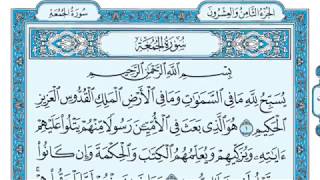 الجزء الثامن والعشرون
سورة الجمعة
سُورَةُ الْجُمُعَةِ
بِسْمِ اللَّهِ الرَّحْمَٰنِ الرَّحِيمِ
يُسَبِّحُ لِلَّهِ مَا فِي السَّمَٰوَٰتِ وَمَا فِي الْأَرْضِ الْمَلِكِ الْقُدُّوسِ الْعَزِيزِ
الْحَكِيمِ ١ هُوَ الَّذِي بَعَثَ فِي الْأُمِّيِّينَ رَسُولًا مِّنْهُمْ يَتْلُوا عَلَيْهِمْ
ءَايَٰتِهِ وَيُزَكِّيهِمْ وَيُعَلِّمُهُمُ الْكِتَٰبَ وَالْحِكْمَةَ وَإِن كَانُوا